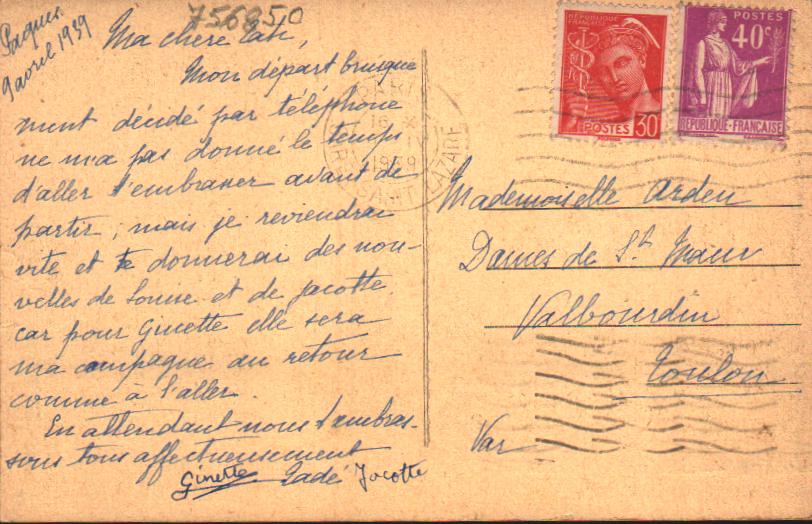 Paques
9 avril 1939
756850
Ma chere Tati,
Mon départ brusque
ment décidé par téléphone
ne m'a pas donné le temps
d'aller t'embrasser avant de
partir, mais je reviendrai
vite et te donnerai des nou-
velles de Louise et de Jacotte
car pour Ginette elle sera
ma compagne au retour
comme à l'aller.
En attendant nous t'embras-
sons tous affectueusement
Ginette Tadé Jacotte
RÉPUBLIQUE FRANÇAISE
POSTES 30
POSTES
40c
RÉPUBLIQUE FRANÇAISE
PARIS
16
1939
SAINT LAZARE
Mademoiselle Arden
Dames de St Maur
Valbourdin
Toulon
Var